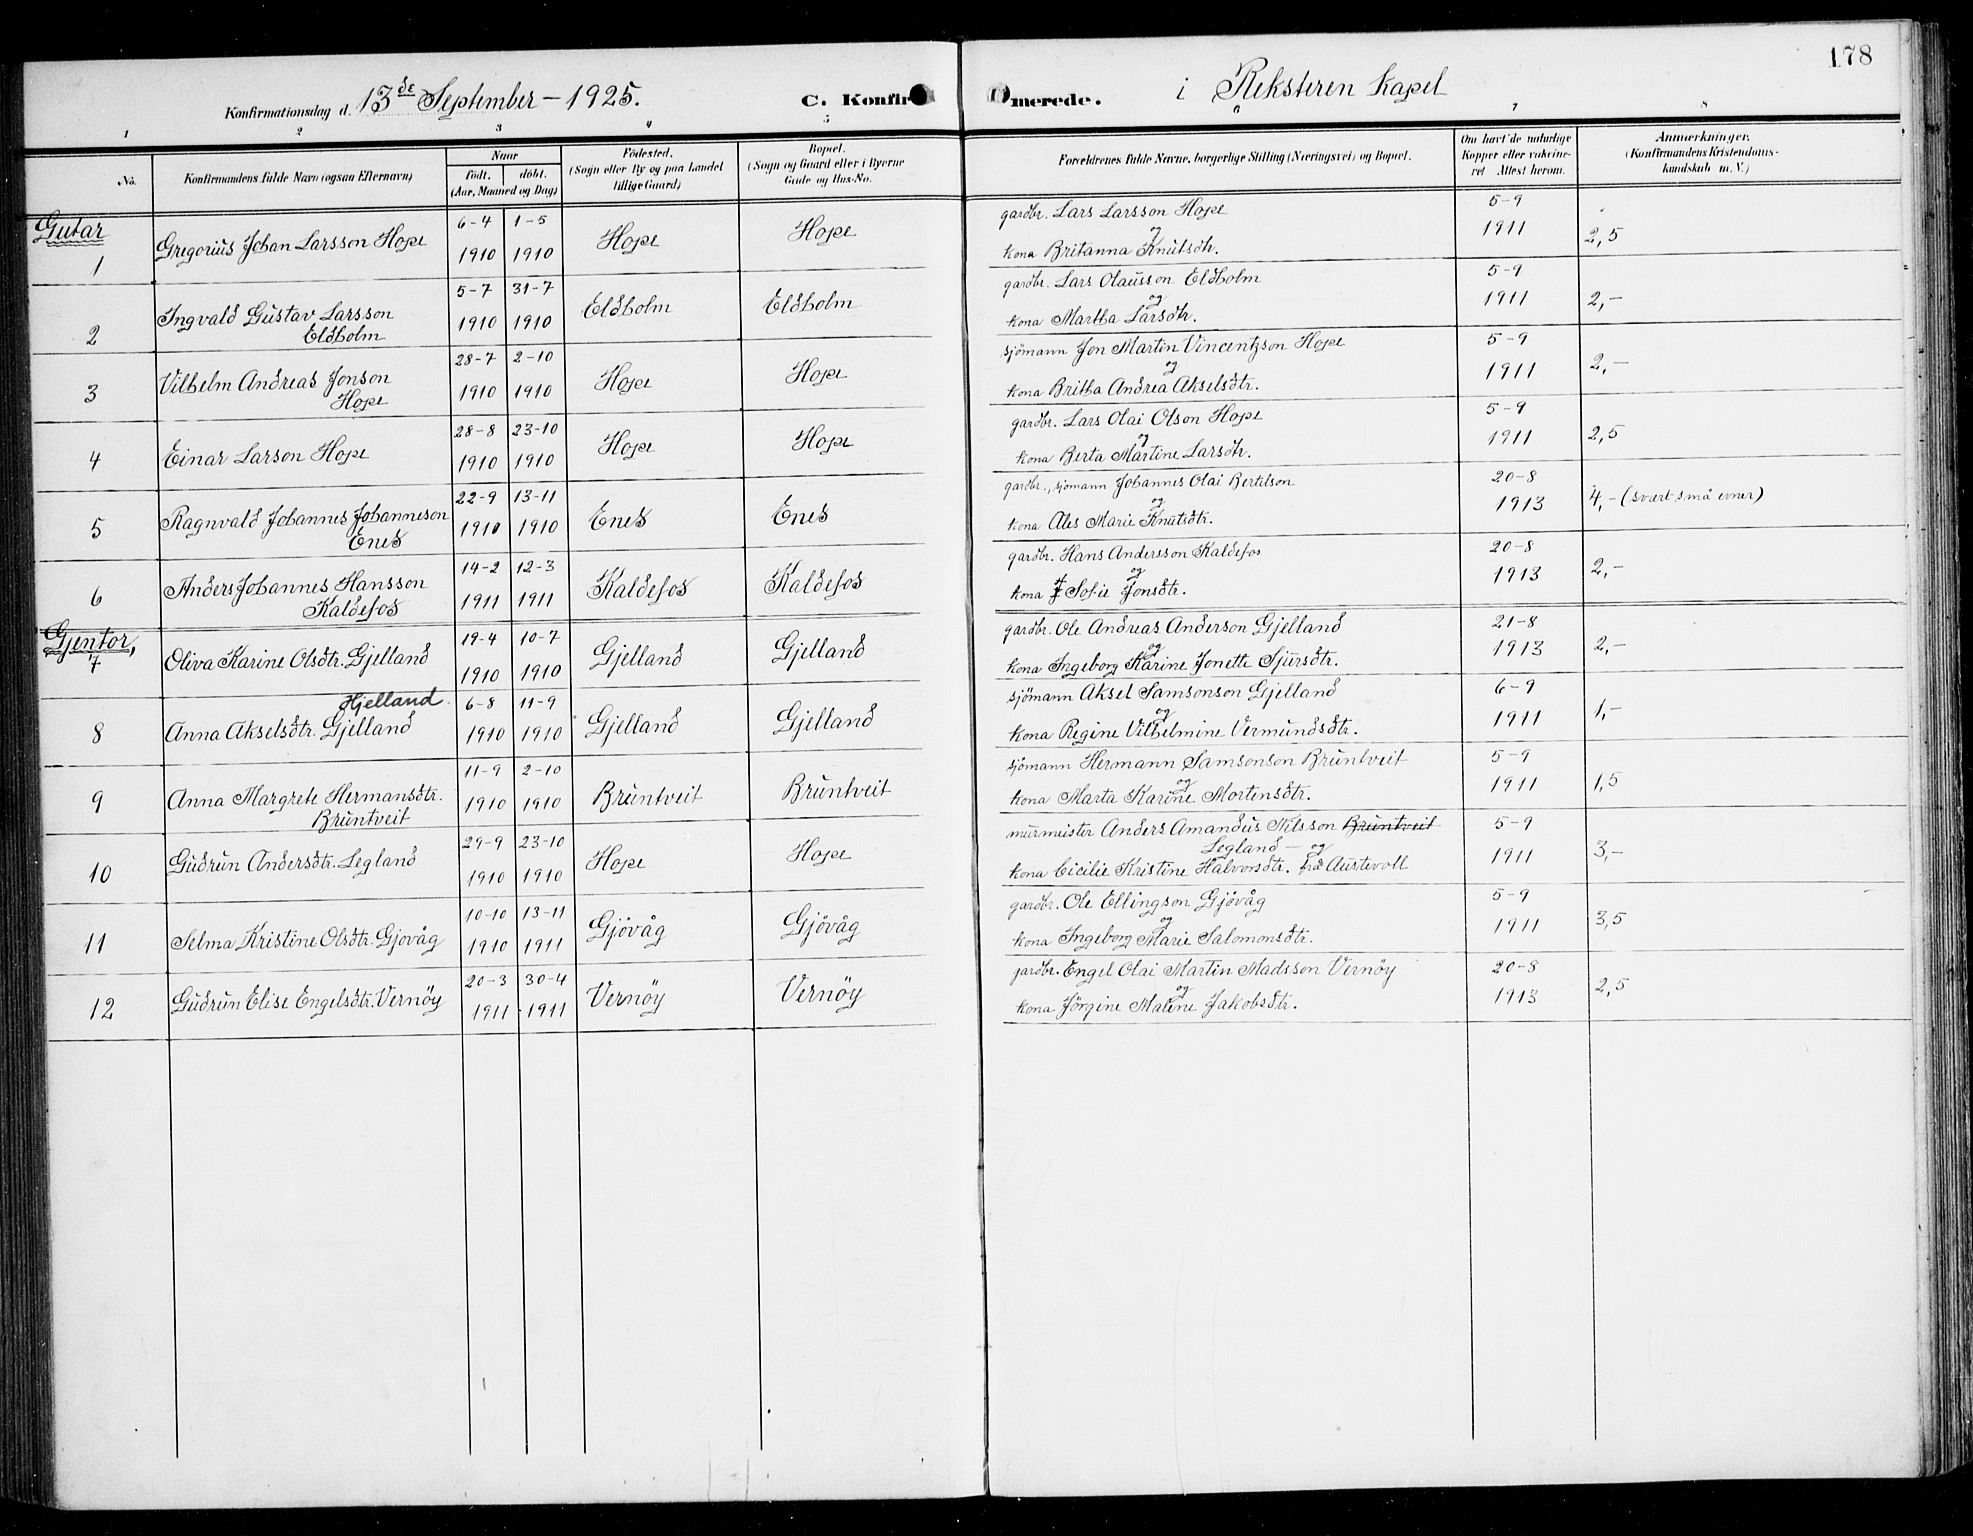 178
Konfirmationsdag d. 13de September – 1925. C. Konfirmerede. i Reksteren Kapel
1 2 3 4 5 6 7 8
No.
Konfirmandens fulde Navn (ogsaa Efternavn)
Naar
født. døbt.
(Aar, Maaned og Dag)
Fødested.
(Sogn eller By og paa Landet
tillige Gaard)
Bopæl.
(Sogn og Gaard eller i Byerne
Gade og Hus-No.
Forældrenes fulde Navne, borgerlige Stilling (Næringsvei) og Bopæl.
Om havt de naturlige
Kopper eller vakcine-
ret Attest herom.
Anmærkninger.
(Konfirmandens Kristendoms-
kundskab m. V.)
Gutar
1 Gregorius Johan Larsson Hope 6-4 1910 1-5 1910 Hope Hope
gardbr. Lars Larsson Hope
og
kona Britanna Knutsdtr. 5-9 1911 2,5
2 Ingvald Gustav Larsson
Eldholm 5-7 1910 31-7 1910 Eldholm Eldholm
gardbr. Lars Olausson Eldholm
og
kona Martha Larsdtr. 5-9 1911 2,-
3 Vilhelm Andreas Jonson
Hope 28-7 1910 2-10 1910 Hope Hope
sjömann Jon Martin Vincentzson Hope
og
kona Britha Andrea Akselsdtr. 5-9 1911 2,-
4 Einar Larson Hope 28-8 1910 23-10 1910 Hope Hope
gardbr. Lars Olai Olson Hope
og
kona Berta Martine Larsdtr. 5-9 1911 2,5
5 Ragnvald Johannes Johanneson
Enes 22-9 1910 13-11 1910 Enes Enes
gardbr., sjömann Johannes Olai Bertilson
og
kona Ales Marie Knutsdtr. 20-8 1913 4,- (svært små evner)
6 Anders Johannes Hansson
Kaldefos 14-2 1911 12-3 1911 Kaldefos Kaldefos
gardbr. Hans Andersson Kaldefos
og
kona Sofie Jonsdtr. 20-8 1913 2,-
Gjentor,
7 Oliva Karine Olsdtr. Gjelland 19-4 1910 10-7 1910 Gjelland Gjelland
gardbr. Ole Andreas Anderson Gjelland
og
kona Ingeborg Karine Jonette Sjursdtr. 21-8 1913 2,-
Hjelland
8 Anna Akselsdtr. Gjelland 6-8 1910 11-9 1910 Gjelland Gjelland
sjömann Aksel Samsonson Gjelland
og
kona Regine Vilhelmine Vermundsdtr. 6-9 1911 1,-
9 Anna Margrete Hermansdtr.
Bruntveit 11-9 1910 2-10 1910 Bruntveit Bruntveit
sjömann Hermann Samsonson Bruntveit
og
kona Marta Karine Mortensdtr. 5-9 1911 1,5
10 Gudrun Andersdtr. Legland 29-9 1910 23-10 1910 Hope Hope
murmeister Anders Amandus Nilsson Bruntveit
Legland – og
kona Cicilie Kristine Halvorsdtr. frå Austevoll 5-9 1911 3,-
11 Selma Kristine Olsdtr. Gjövåg 10-10 1910 13-11 1911 Gjövåg Gjövåg
gardbr. Ole Ellingson Gjövåg
og
kona Ingeborg Marie Salomonsdtr. 5-9 1911 3,5
12 Gudrun Elise Engelsdtr. Vernöy 20-3 1911 30-4 1911 Vernöy Vernöy
gardbr. Engel Olai Martin Madsson Vernöy
og
kona Jörgine Maline Jakobsdtr. 20-8 1913 2,5